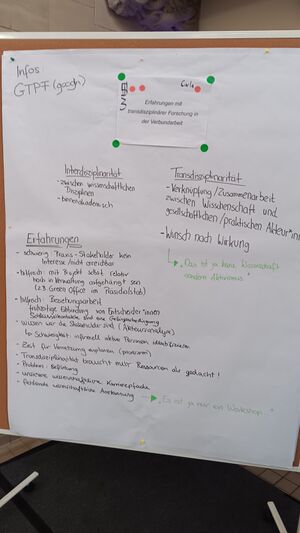 Infos:
GTPF (google)
Carla
Erfahrungen mit
transdisziplinärer Forschung in
der Verbundarbeit
Interdisziplinarität
- zwischen wissenschaftlichen
Disziplinen
- binnenakademisch
Transdisziplinarität
- Verknüpfung/Zusammenarbeit
zwischen Wissenschaft und
gesellschaftlichen/praktischen Akteur*innen
- Wunsch nach Wirkung
"Das ist ja keine Wissenschaft
sondern Aktivismus"
Erfahrungen
- schwierig: Praxis-Stakeholder kein
Interesse/nicht erreichbar
- hilfreich: mit Projekt selbst relativ
hoch in Verwaltung aufgehängt sein
(z.B. Green Office im Präsidialstab)
- hilfreich: Beziehungsarbeit
frühzeitige Einbindung von Entscheider*innen
- wissen wer die Stakeholder sind (Akteursanalyse)
↳ Schwierigkeit: informell aktive Personen identifizieren
- Zeit für Vernetzung einplanen
- Transdisziplinarität braucht mehr Ressourcen als gedacht!
- Problem: Befristung
- unsichere wissenschaftliche Karrierepfade
- fehlende wissenschaftliche Anerkennung
"Es ist ja nur ein Workshop..."